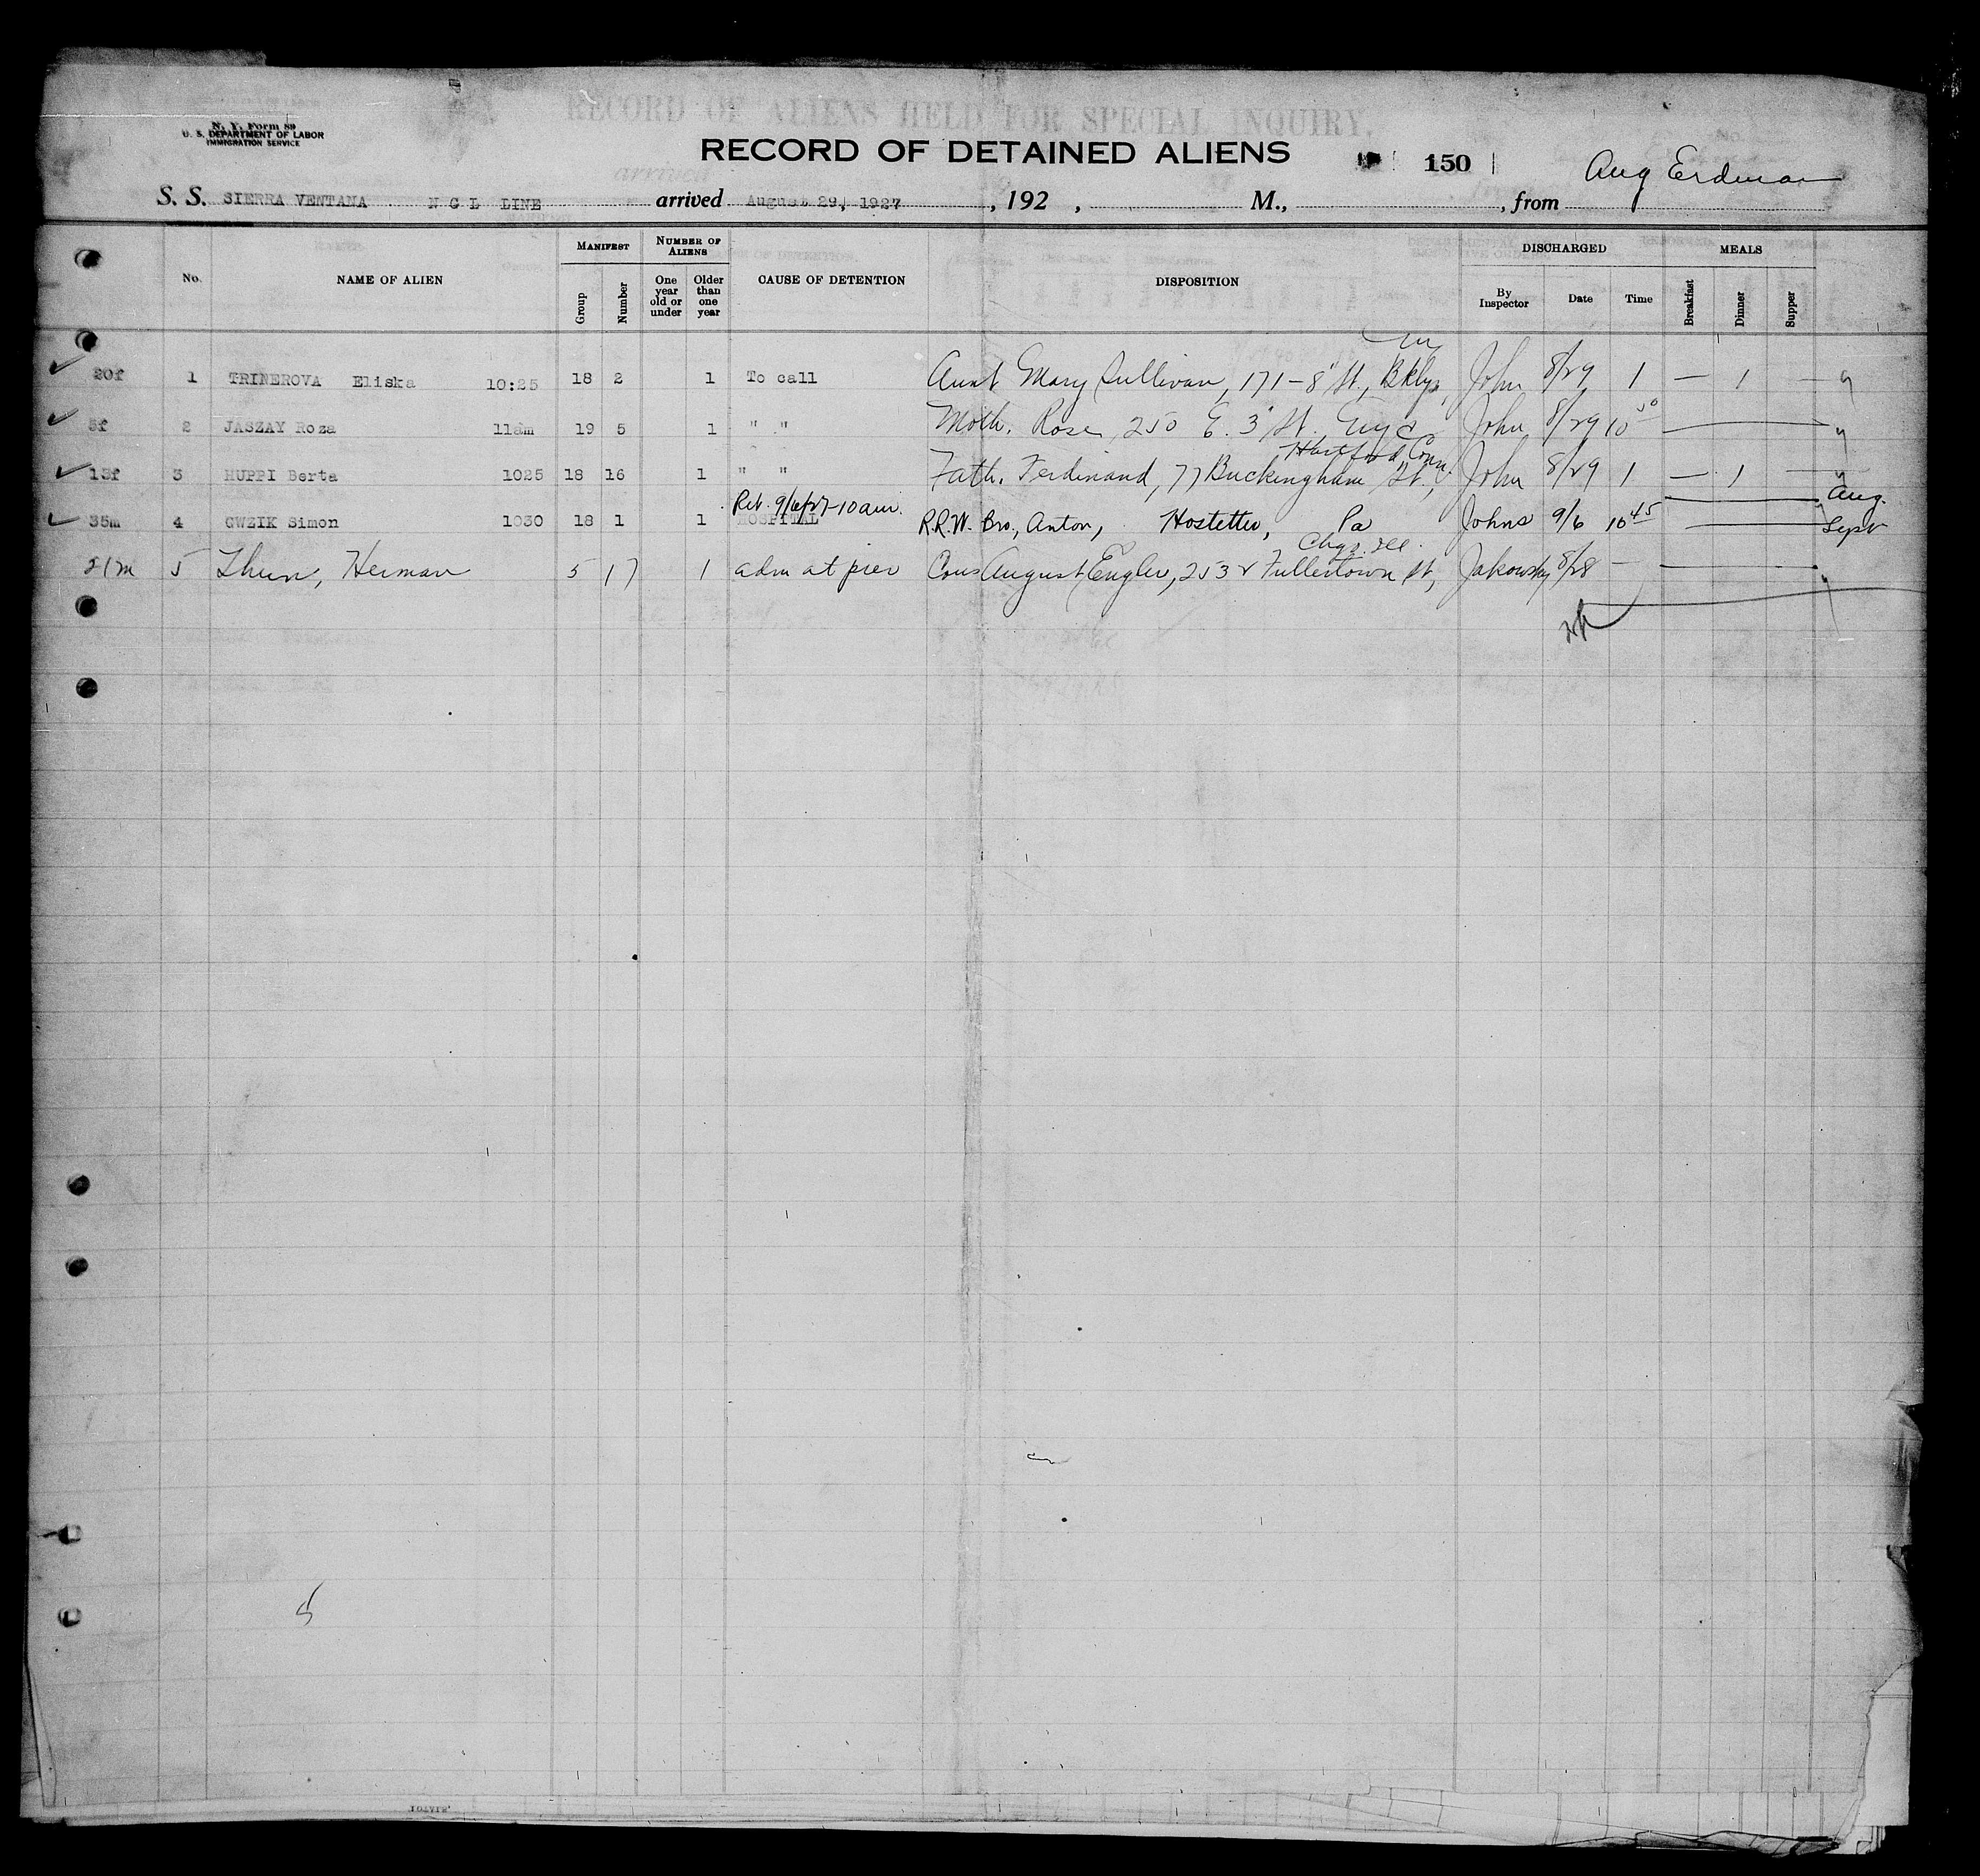 RECORD OF ALIENS HELD FOR SPECIAL INQUIRY.
N. Y. Form 89
U. S. DEPARTMENT OF LABOR
IMMIGRATION SERVICE
RECORD OF DETAINED ALIENS 150 Aug Erdman
S. S. SIERRA VENTANA N G L LINE arrived August 29, 1927, 192 , M., , from
No. NAME OF ALIEN MANIFEST Group Number NUMBER OF ALIENS One year old or under Older than one year CAUSE OF DETENTION DISPOSITION DISCHARGED By Inspector Date Time MEALS Breakfast Dinner Supper
20f 1 TRINEROVA Eliska 10:25 18 2 1 To call Aunt Mary Sullivan, 171-8" St., Bklyn, NY John 8/29 1 — 1 —
5f 2 JASZAY Roza 11am 19 5 1 " " Moth. Rose, 250 E. 3" St. NYC John 8/29 10 50
13f 3 HUPPI Berta 1025 18 16 1 " " Fath. Ferdinand, 77 Buckingham St., Hartford, Conn. John 8/29 1 — 1 —
Ret. 9/6/27-10am. Aug.
35m 4 GWZIK Simon 1030 18 1 1 HOSPITAL R.R.W. Bro, Anton, Hostetter, Pa Johns 9/6 10 45 Sept
21m 5 Thun, Herman 5 17 1 adm at pier Cous August Engler, 2532 Fullertown St, Chgo. Ill. Jakowsky 8/28 —
5